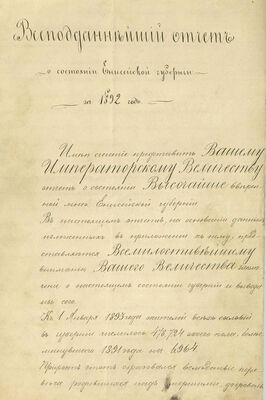 Всеподданнѣйшій отчетъ
о состояніи Енисейской губерніи
за 1892 годъ.
Имѣю счастіе представить Вашему
Императорскому Величеству
отчетъ о состояніи Высочайше ввѣрен-
ной мнѣ Енисейской губерніи.
Въ настоящемъ отчетѣ, на основаніи данныхъ
изложенныхъ въ приложеніи къ нему, пред-
ставляется Всемилостивѣйшему
вниманію Вашего Величества
о настоящемъ состояніи губерніи и
Къ 1 Января 1893 года жителей всѣхъ сословій
въ губерніи числилось 476,724 обоего пола, болѣе
минувшаго 1891 года на 6964.
Приростъ этотъ образовался вслѣдствіе пере-
вѣса родившихся надъ умершими,